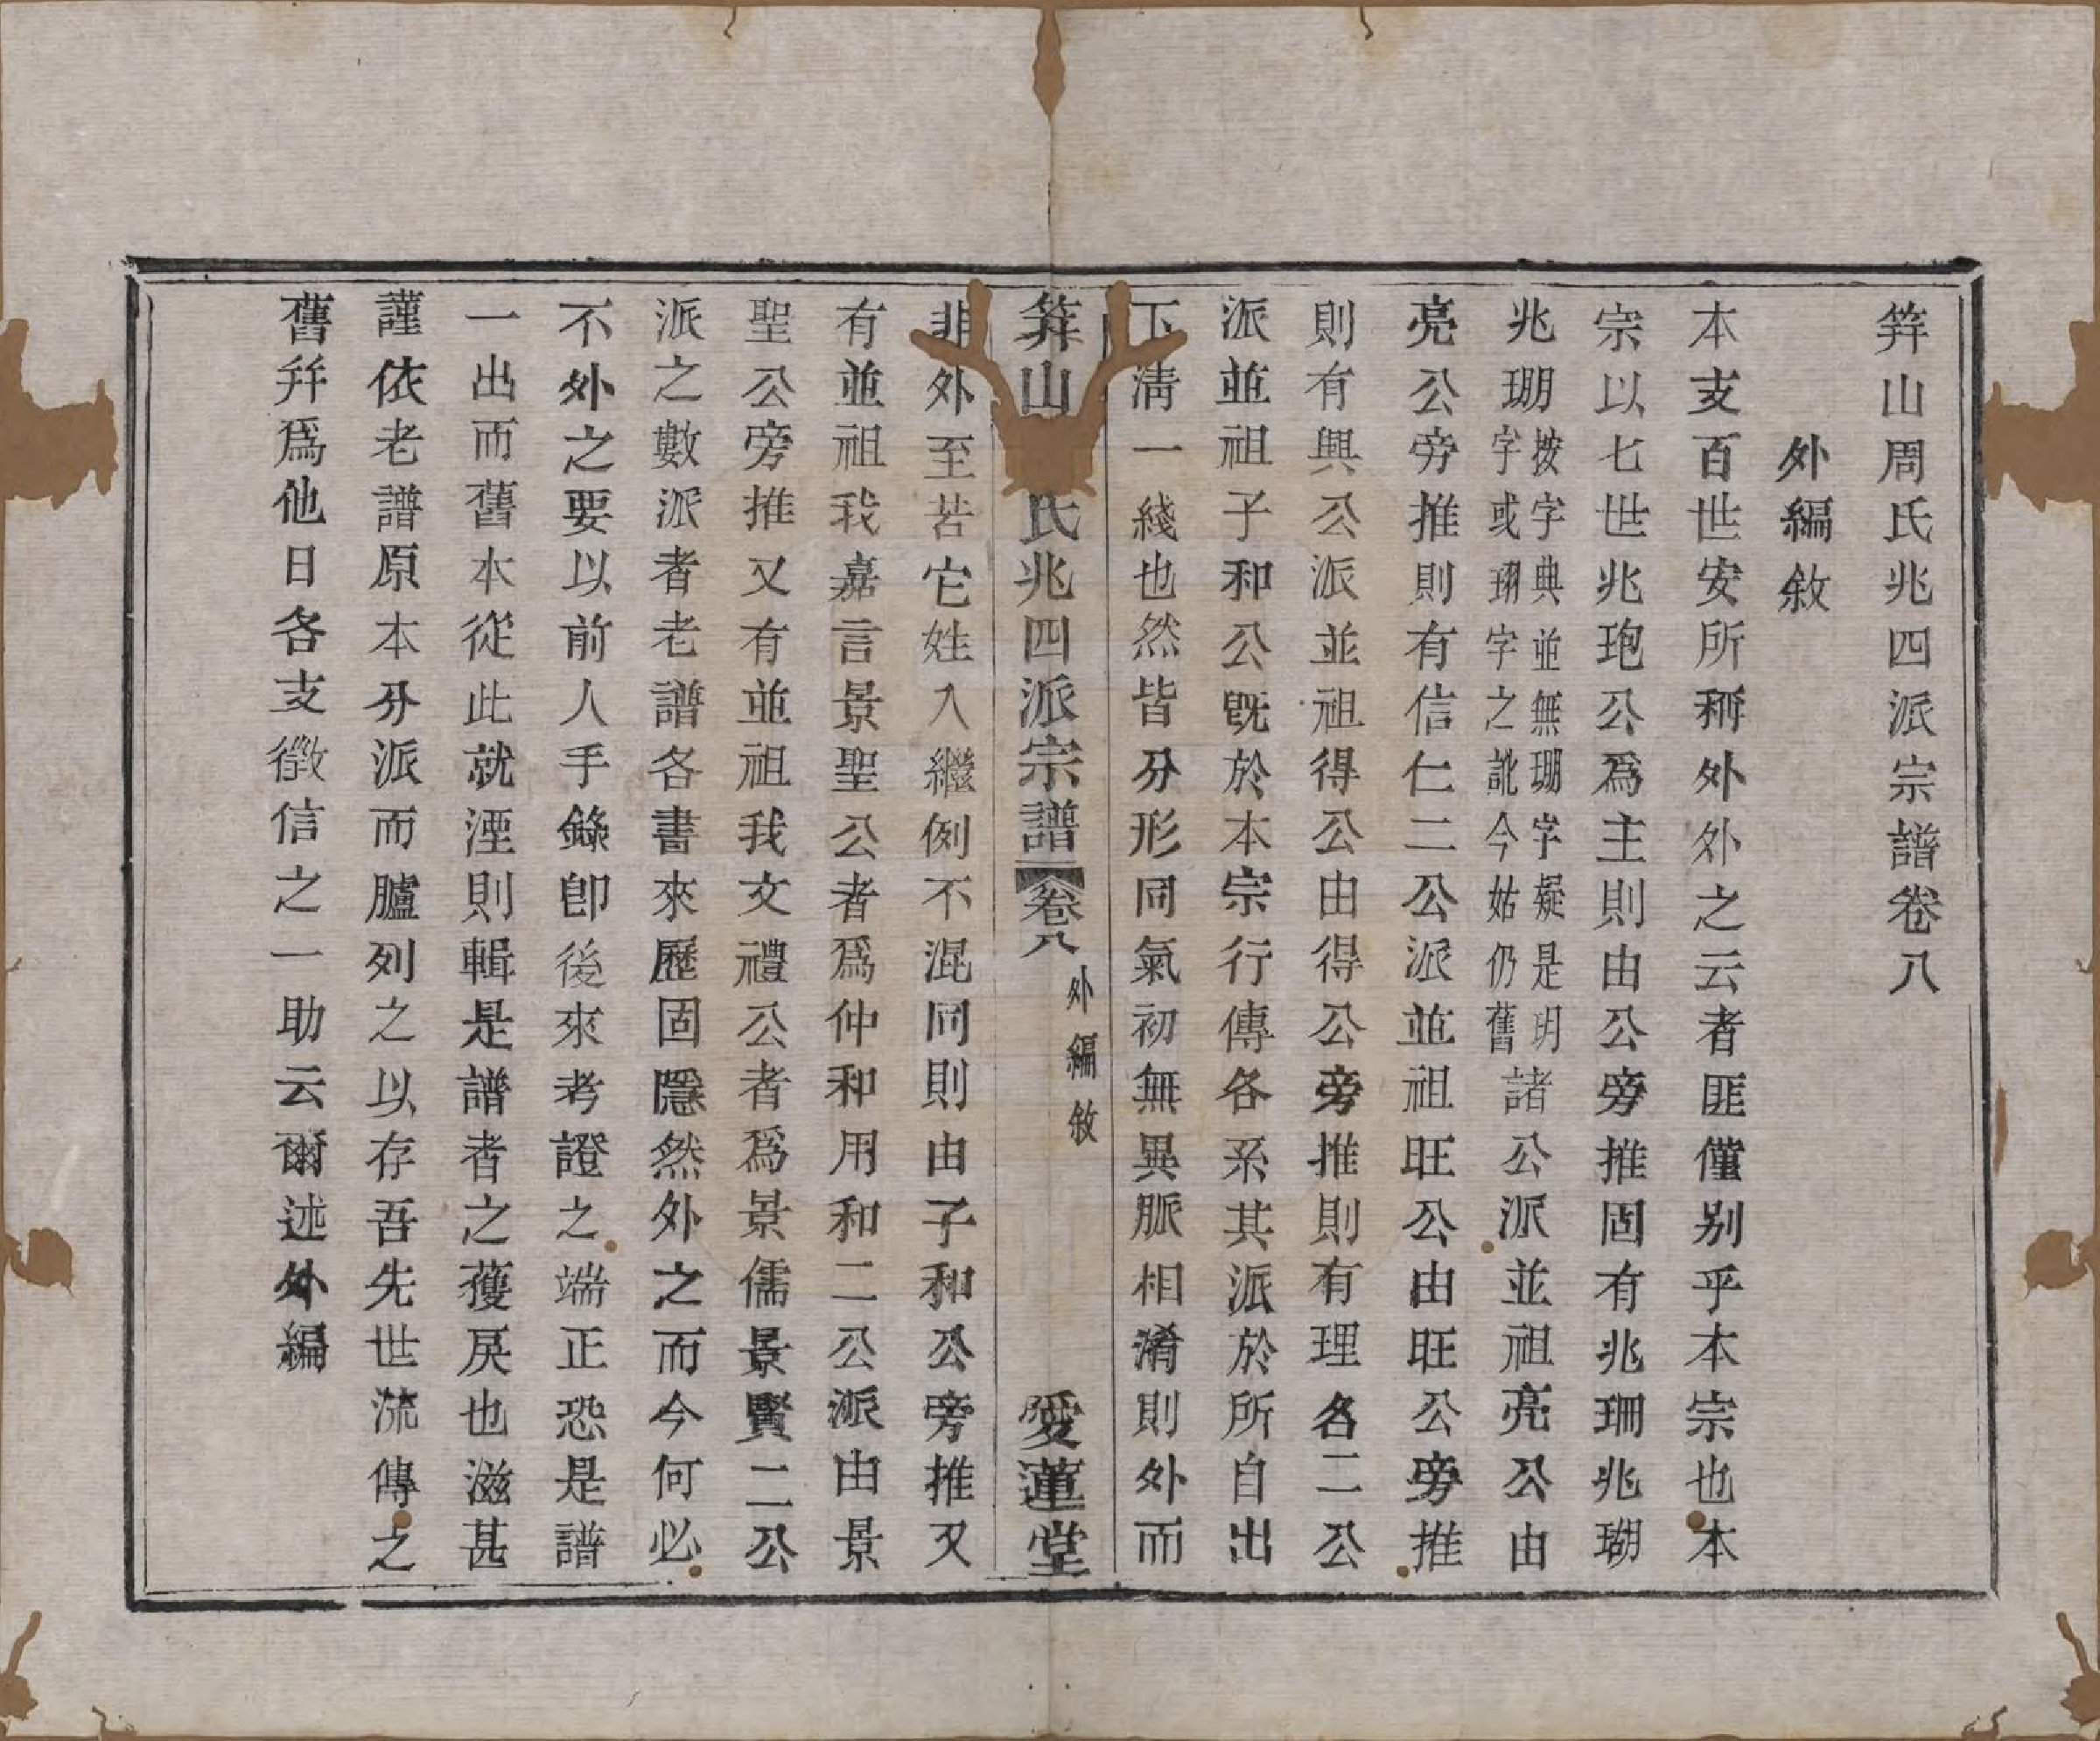 筓山周氏兆四派宗譜卷八
外編敘
本支百世安所稱外外之云者匪僅別乎本宗也本
宗以七世兆玸公爲主則由公旁推固有兆珊兆瑚
兆珊按字典並無珊字疑是玥
字或珝字之訛今姑仍舊諸公派並祖亮公由
亮公旁推則有信仁二公派並祖旺公由旺公旁推
則有興公派並祖得公由得公旁推則有理名二公
派並祖子和公既於本宗行傳各系其派於所自出
下淸一綫也然皆分形同氣初無異脈相淆則外而
筓山 氏兆四派宗譜 卷八 外編敘 愛蓮堂
非外至若它姓入繼例不混同則由子和公旁推又
有並祖我嘉言景聖公者爲仲和用和二公派由景
聖公旁推又有並祖我文禮公者爲景儒景賢二公
派之數派者老譜各書來歷固隱然外之而今何必
不外之要以前人手錄卽後來考證之端正恐是譜
一出而舊本從此就湮則輯是譜者之獲戾也滋甚
謹依老譜原本分派而臚列之以存吾先世流傳之
舊幷爲他日各支徵信之一助云爾述外編